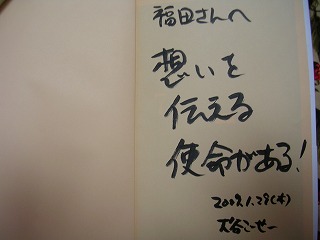 福田さんへ
想いを
伝える
使命がある!
2009.1.29(木)
大谷こーせー